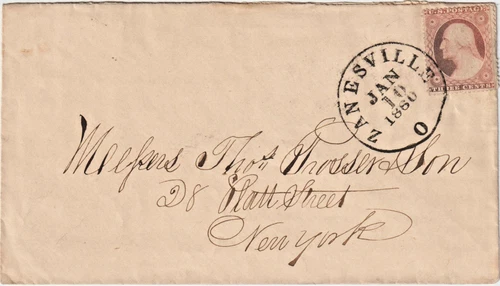 U.S. POSTAGE
THREE CENTS
ZANESVILLE O
JAN
10
1860
Messers Thos. Prosser & Son
28 Platt Street
New York